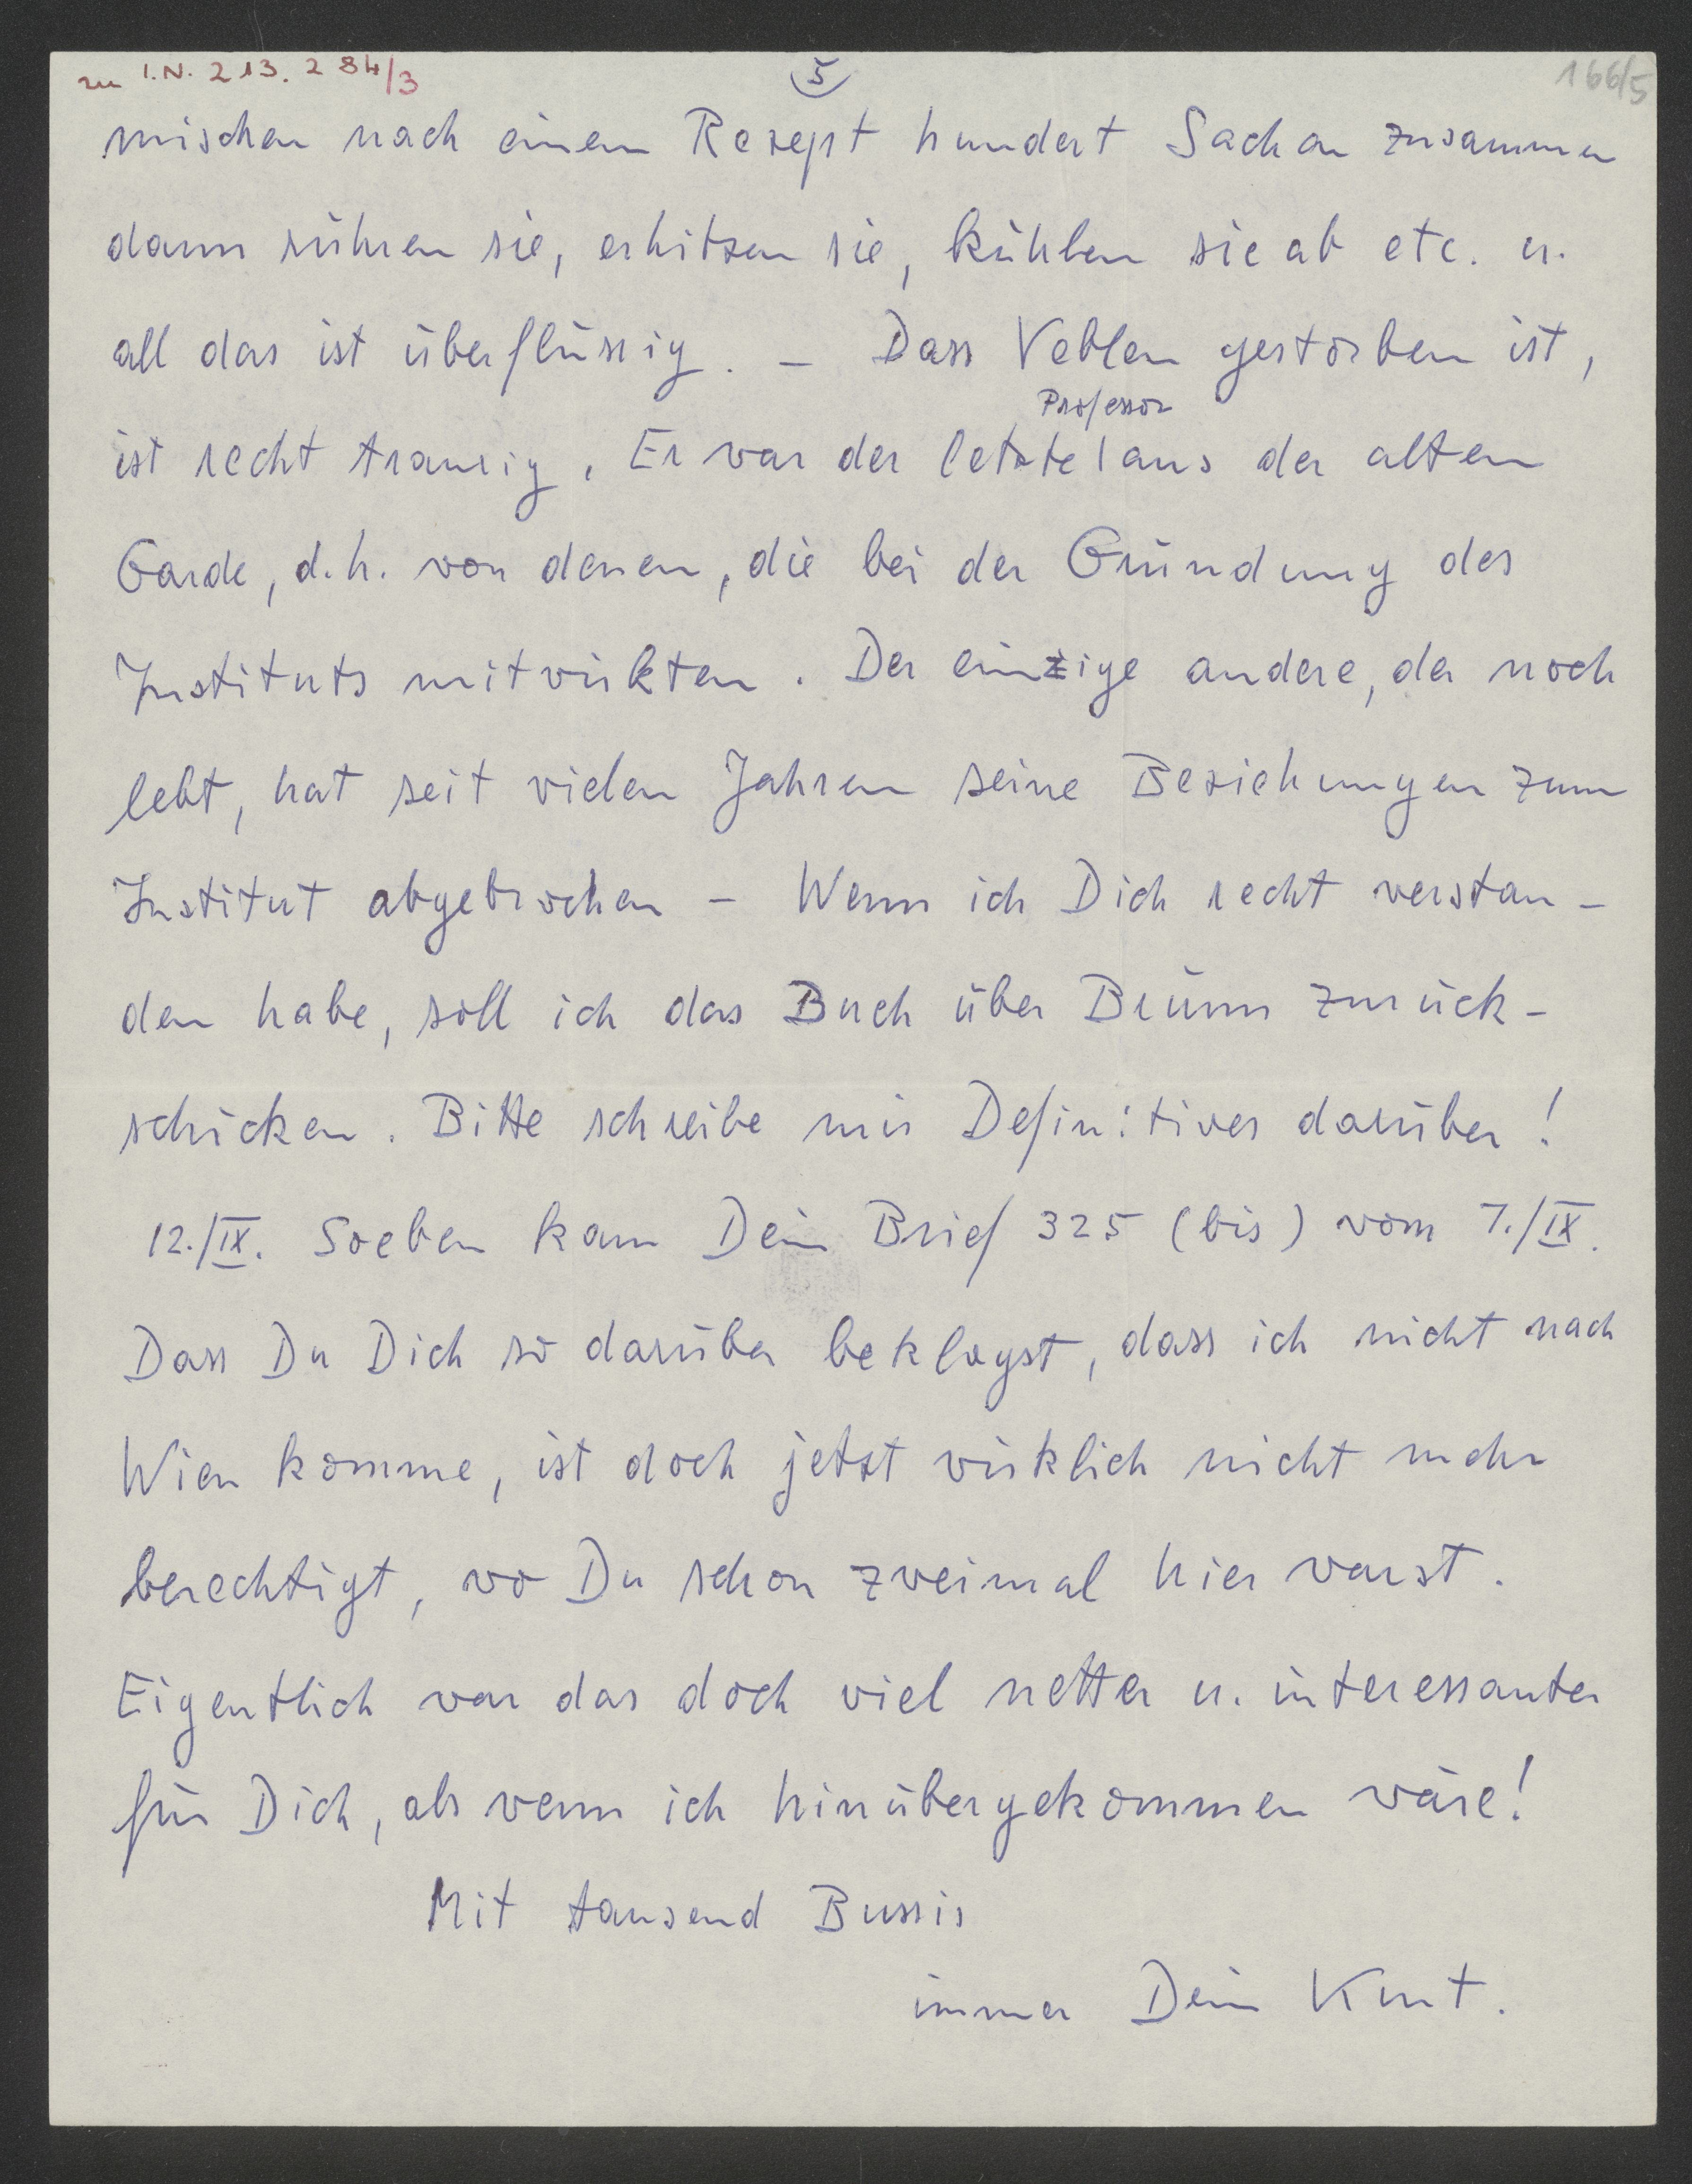 zu I.N. 213.284/3
5
166/5
mischen nach einem Rezept hundert Sachen zusammen
dann rühren sie, erhitzen sie, kühlen sie ab etc. u.
all das ist überflüssig. – Dass Veblen gestorben ist,
Professor
ist recht traurig. Er war der letzte | aus der alten
Garde, d.h. von denen, die bei der Gründung des
Instituts mitwirkten. Der einzige andere, der noch
lebt, hat seit vielen Jahren seine Beziehungen zum
Institut abgebrochen – Wenn ich Dich recht verstan-
den habe, soll ich das Buch über Brünn zurück-
schicken. Bitte schreibe mir Definitives darüber!
12./IX. Soeben kam Dein Brief 325 (bis) vom 7./IX.
Dass Du Dich so darüber beklagst, dass ich nicht nach
Wien komme, ist doch jetzt wirklich nicht mehr
berechtigt, wo Du schon zweimal hier warst.
Eigentlich war das doch viel netter u. interessanter
für Dich, als wenn ich hinübergekommen wäre!
Mit tausend Bussis
immer Dein Kurt.